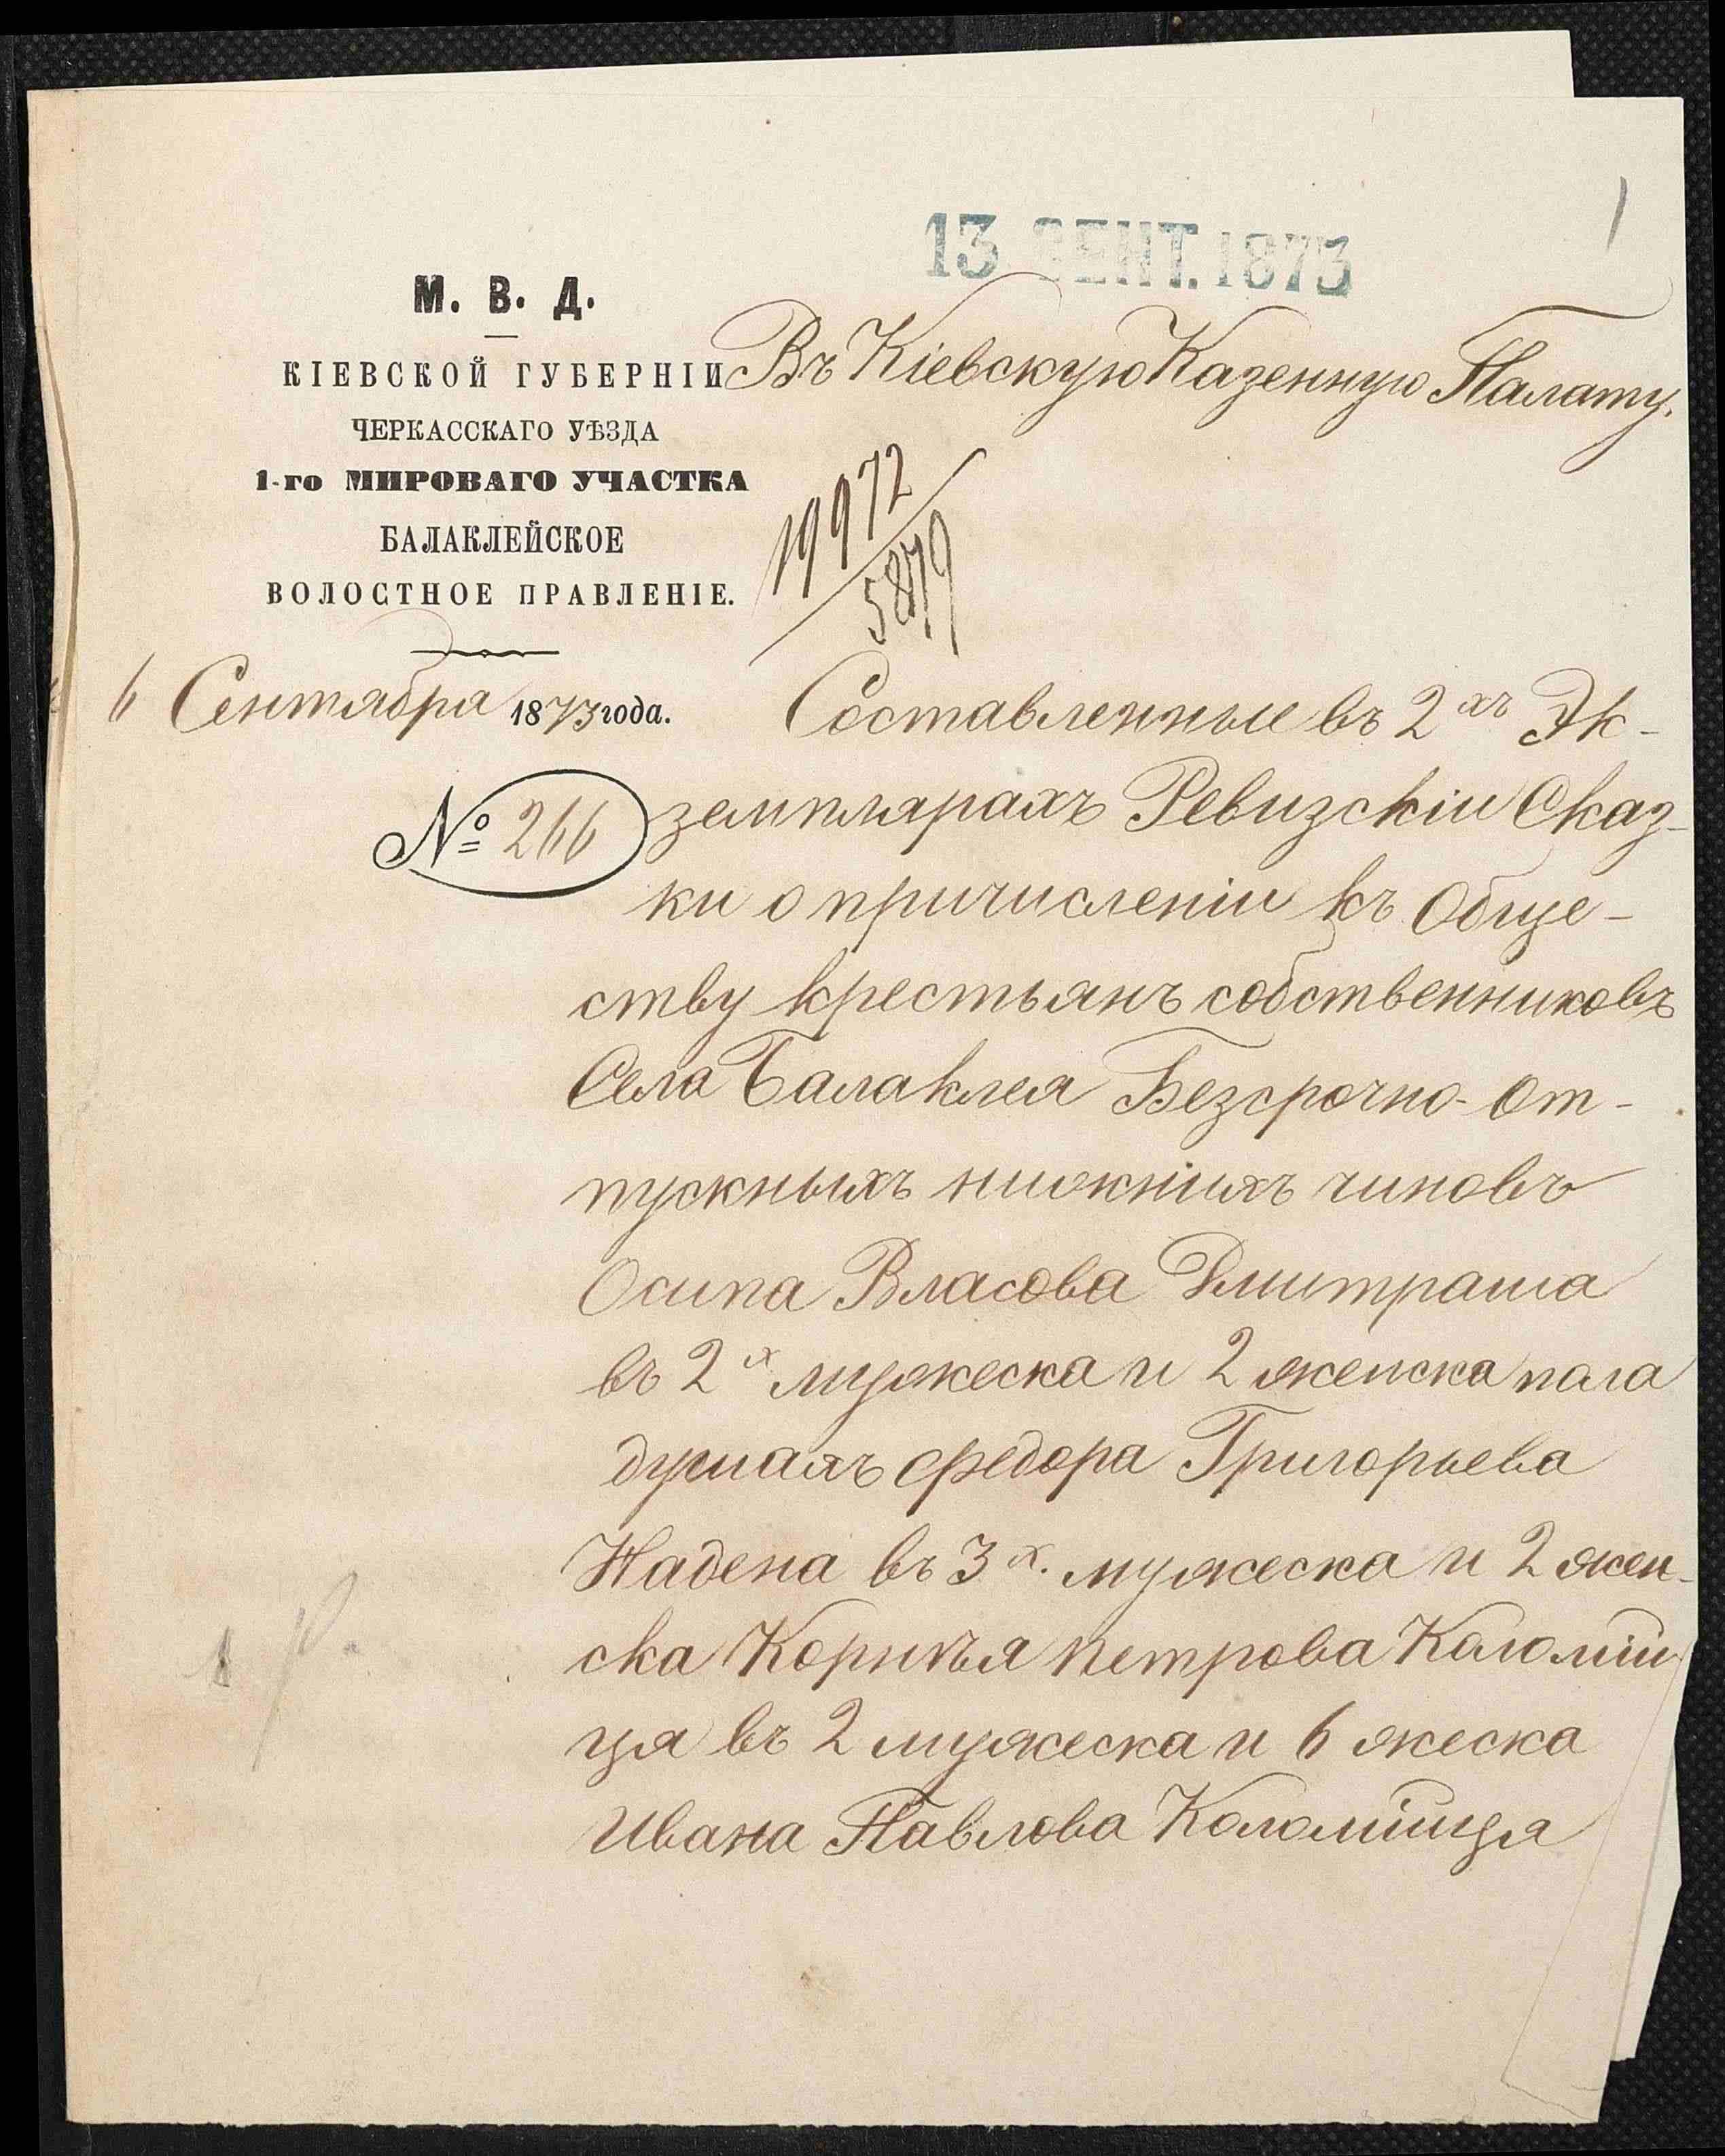 1
13 СЕНТ. 1873
М. В. Д.
КІЕВСКОЙ ГУБЕРНІИ
ЧЕРКАССКАГО УѢЗДА
1-го МИРОВАГО УЧАСТКА
БАЛАКЛЕЙСКОЕ
ВОЛОСТНОЕ ПРАВЛЕНІЕ.
6 Сентября 1873 года.
№ 266
Въ Кіевскую Казенную Палату.
19972
5879
Составленные въ 2хъ Эк-
земплярахъ Ревизскіи Сказ-
ки о причисленіи къ Обще-
ству крестьянъ собственниковъ
Села Балаклея Безсрочно-От-
пускныхъ нижнихъ чиновъ
Осипа Власова Дмитраша
въ 2х мужеска и 2 женска пола
душахъ Федора Григорьева
Надена въ 3х. мужеска и 2 жен-
ска Корнѣя Петрова Коломій
ця въ 2 мужеска и 6 жеска
Ивана Павлова Коломійця